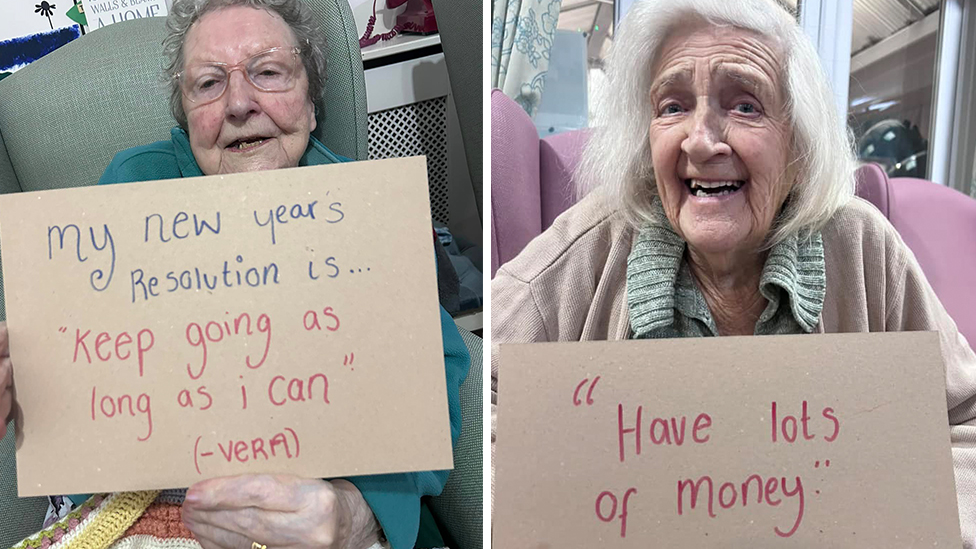 WALLS & BEAMS
A HOME
my new year's
Resolution is...
"Keep going as
long as i can"
(-VERA)
"Have lots
of money."